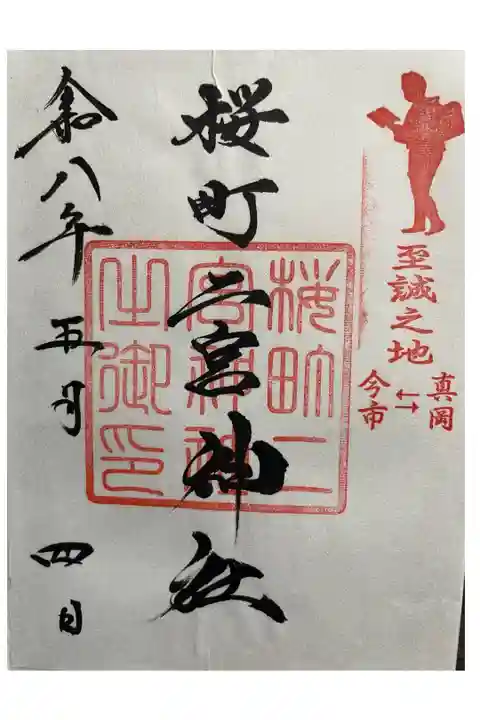 至誠之地
真岡
←→
今市
桜町二宮神社
桜町二
宮神社
之御印
令八年五月四日